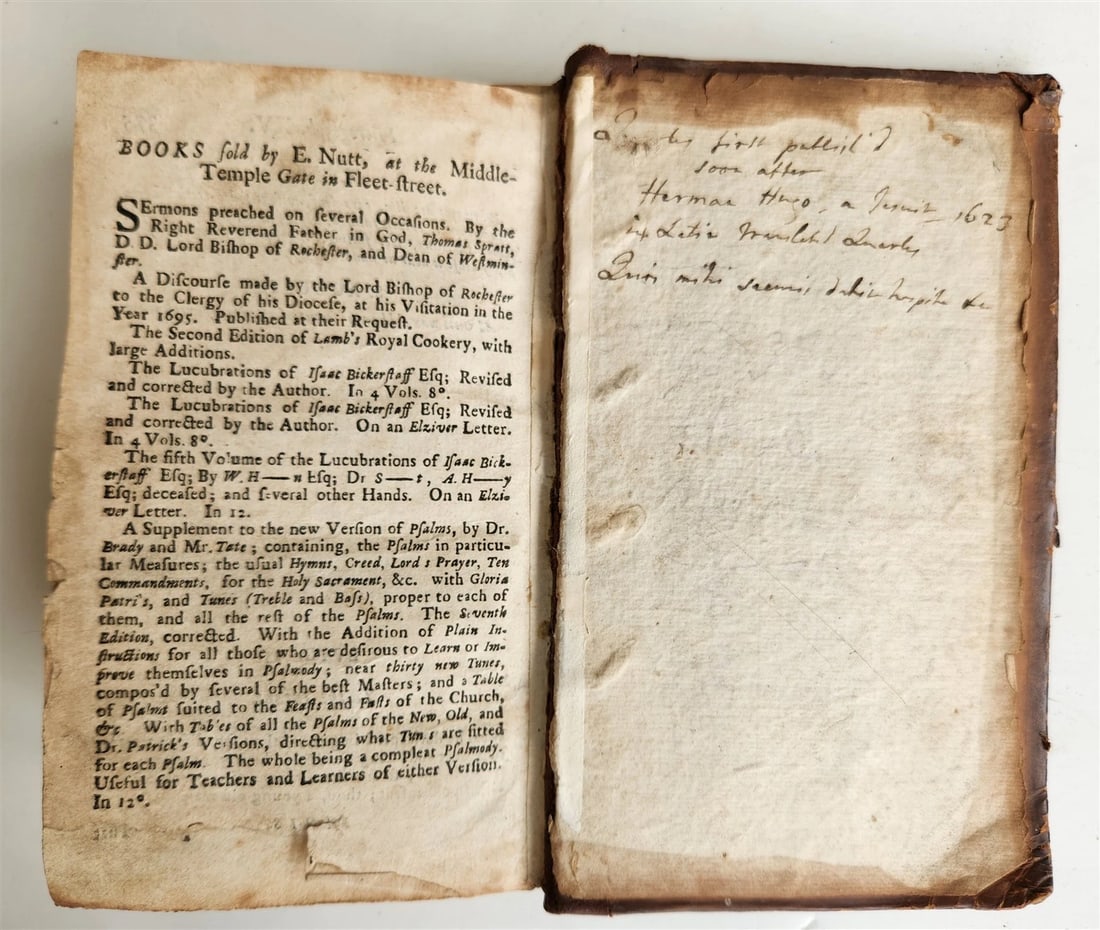 BOOKS ſold by E. Nutt, at the Middle-
Temple Gate in Fleet-ſtreet.
SErmons preached on ſeveral Occaſions. By the
Right Reverend Father in God, Thomas Spratt,
D. D. Lord Biſhop of Rocheſter, and Dean of Weſtmin-
ſter.
A Diſcourſe made by the Lord Biſhop of Rocheſter
to the Clergy of his Dioceſe, at his Viſitation in the
Year 1695. Publiſhed at their Requeſt.
The Second Edition of Lamb's Royal Cookery, with
large Additions.
The Lucubrations of Iſaac Bickerſtaff Eſq; Reviſed
and corrected by the Author. In 4 Vols. 8°.
The Lucubrations of Iſaac Bickerſtaff Eſq; Reviſed
and corrected by the Author. On an Elziver Letter.
In 4 Vols. 8°.
The fifth Volume of the Lucubrations of Iſaac Bick-
erſtaff Eſq; By W. H——n Eſq; Dr S——t, A. H——y
Eſq; deceaſed; and ſeveral other Hands. On an Elzi-
ver Letter. In 12.
A Supplement to the new Verſion of Pſalms, by Dr.
Brady and Mr. Tate; containing, the Pſalms in particu-
lar Meaſures; the uſual Hymns, Creed, Lord s Prayer, Ten
Commandments, for the Holy Sacrament, &c. with Gloria
Patri's, and Tunes (Treble and Baſs), proper to each of
them, and all the reſt of the Pſalms. The Seventh
Edition, corrected. With the Addition of Plain In-
ſtructions for all thoſe who are deſirous to Learn or Im-
prove themſelves in Pſalmody; near thirty new Tunes,
compos'd by ſeveral of the beſt Maſters; and a Table
of Pſalms ſuited to the Feaſts and Faſts of the Church,
&c. With Tables of all the Pſalms of the New, Old, and
Dr. Patrick's Verſions, directing what Tun s are fitted
for each Pſalm. The whole being a compleat Pſalmody.
Uſeful for Teachers and Learners of either Verſion.
In 12°.
first publish'd
soon after
Herman Hugo, a Jesuit 1623
in Latin Quarles
mihi &c